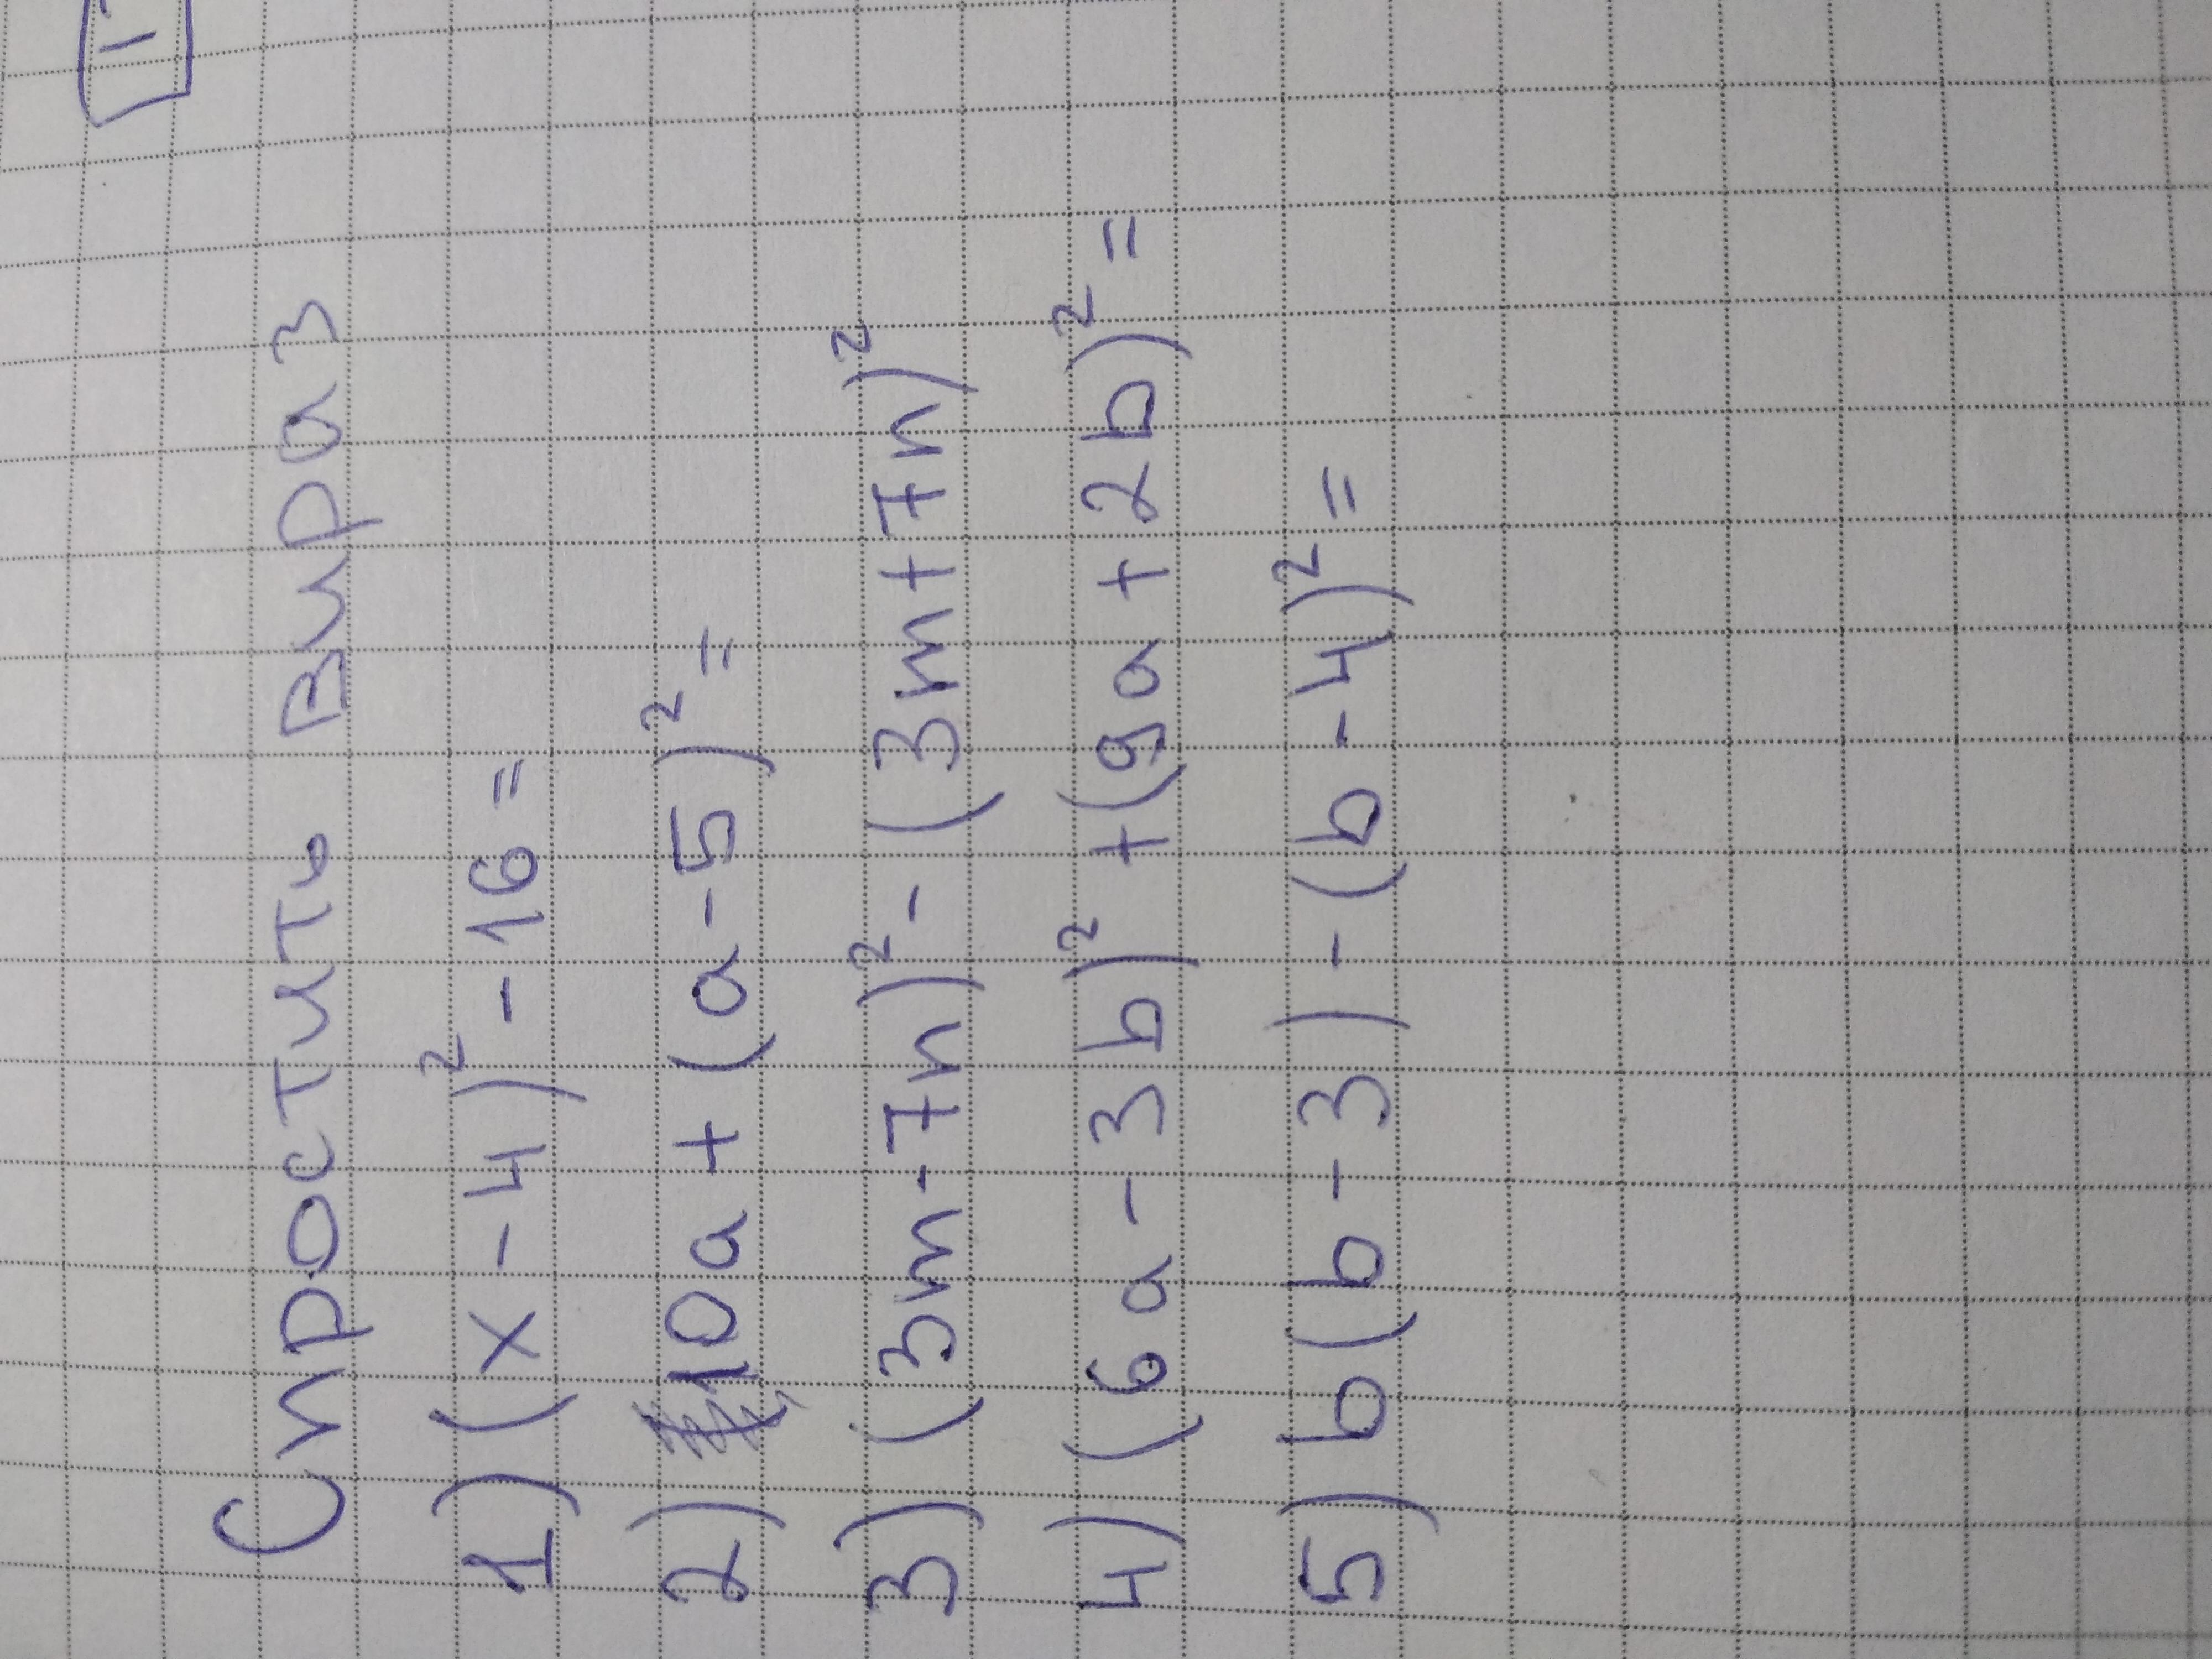 Спростить вираз
1) (x-4)² -16=
2) 10a + (a-5)² =
3) (3m-7n)² - (3m+7n)²
4) (6a-3b)² +(9a+2b)² =
5) b(b-3)-(b-4)² =